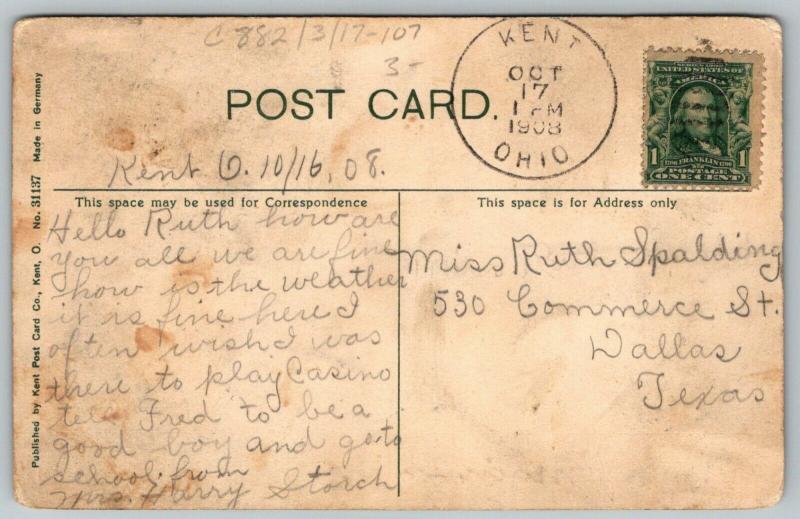 C 882/3/17-107
3-
POST CARD.
KENT
OCT
17
1 PM
1908
OHIO
SERIES 1902
UNITED STATES OF
AMERICA
1 1706 FRANKLIN 1790 1
POSTAGE
ONE CENT
Kent O. 10/16, 08.
This space may be used for Correspondence
This space is for Address only
Hello Ruth how are
you all we are fine
how is the weather
it is fine here I
often wish I was
there to play Casino
tell Fred to be a
good boy and go to
school. from
Mrs. Harry Storch
Miss Ruth Spalding
530 Commerce St.
Dallas
Texas
Published by Kent Post Card Co., Kent, O. No. 31137 Made in Germany